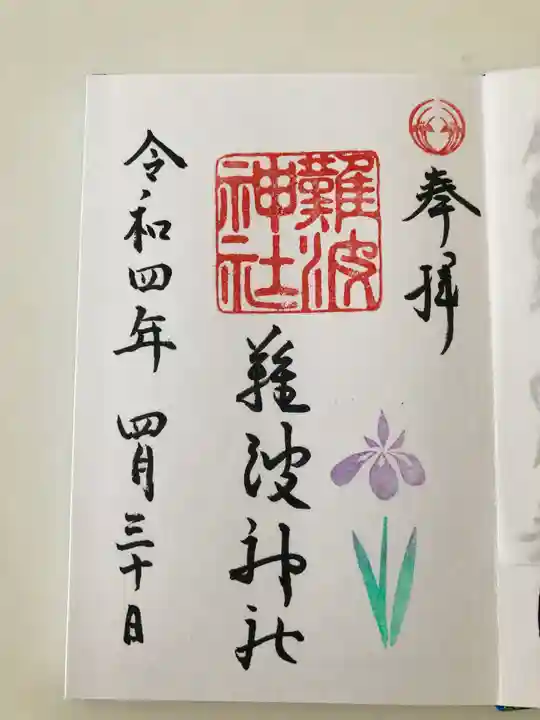 奉拝
難波
神社
難波神社
令和四年 四月三十日